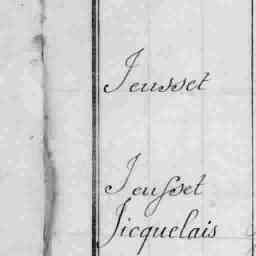 Jeusset
Jeuſset
Jicquelais